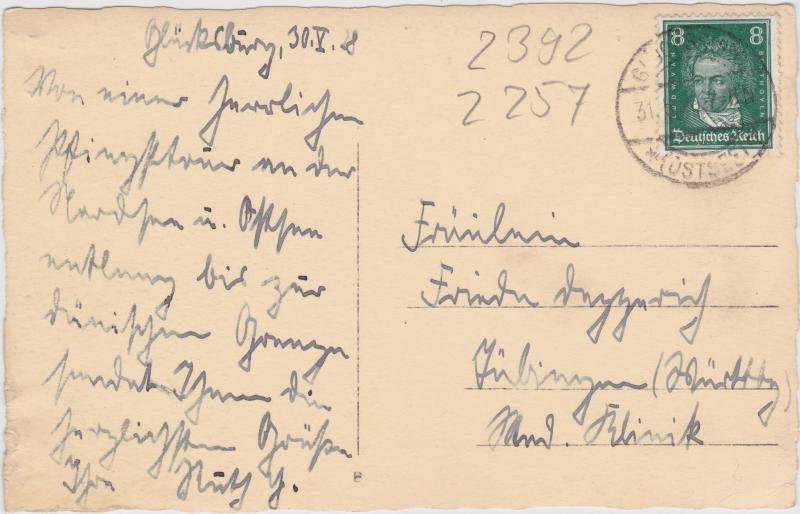 Glücksburg, 30.V.28
Von einer herrlichen
Pfingsttour an der
Nordsee u. Ostsee
entlang bis zur
dänischen Grenze
sendet Ihnen die
herzlichsten Grüße
Ihre Ruth G.
2392
2257
8 8
LUDWIG VAN BEETHOVEN
Deutsches Reich
31.
(OSTSEE)
Fräulein
Frieda Deggerich
Tübingen (Württbg)
Med. Klinik